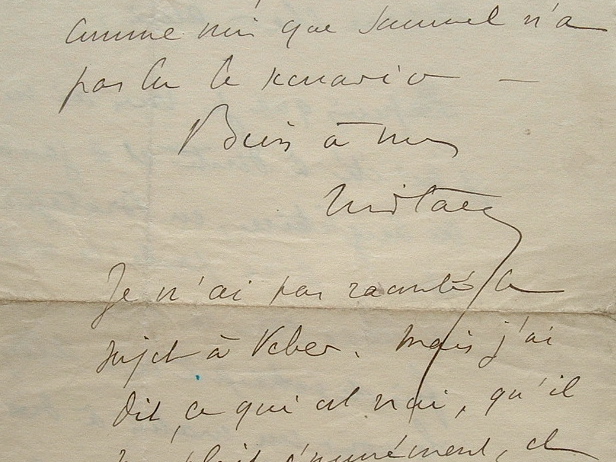 comme moi que Samuel n'a
pas lu le scenario —
Bien à vous
Je n'ai pas raconté le
sujet à Veber. Mais j'ai
dit, ce qui est vrai, qu'il
énormément, et